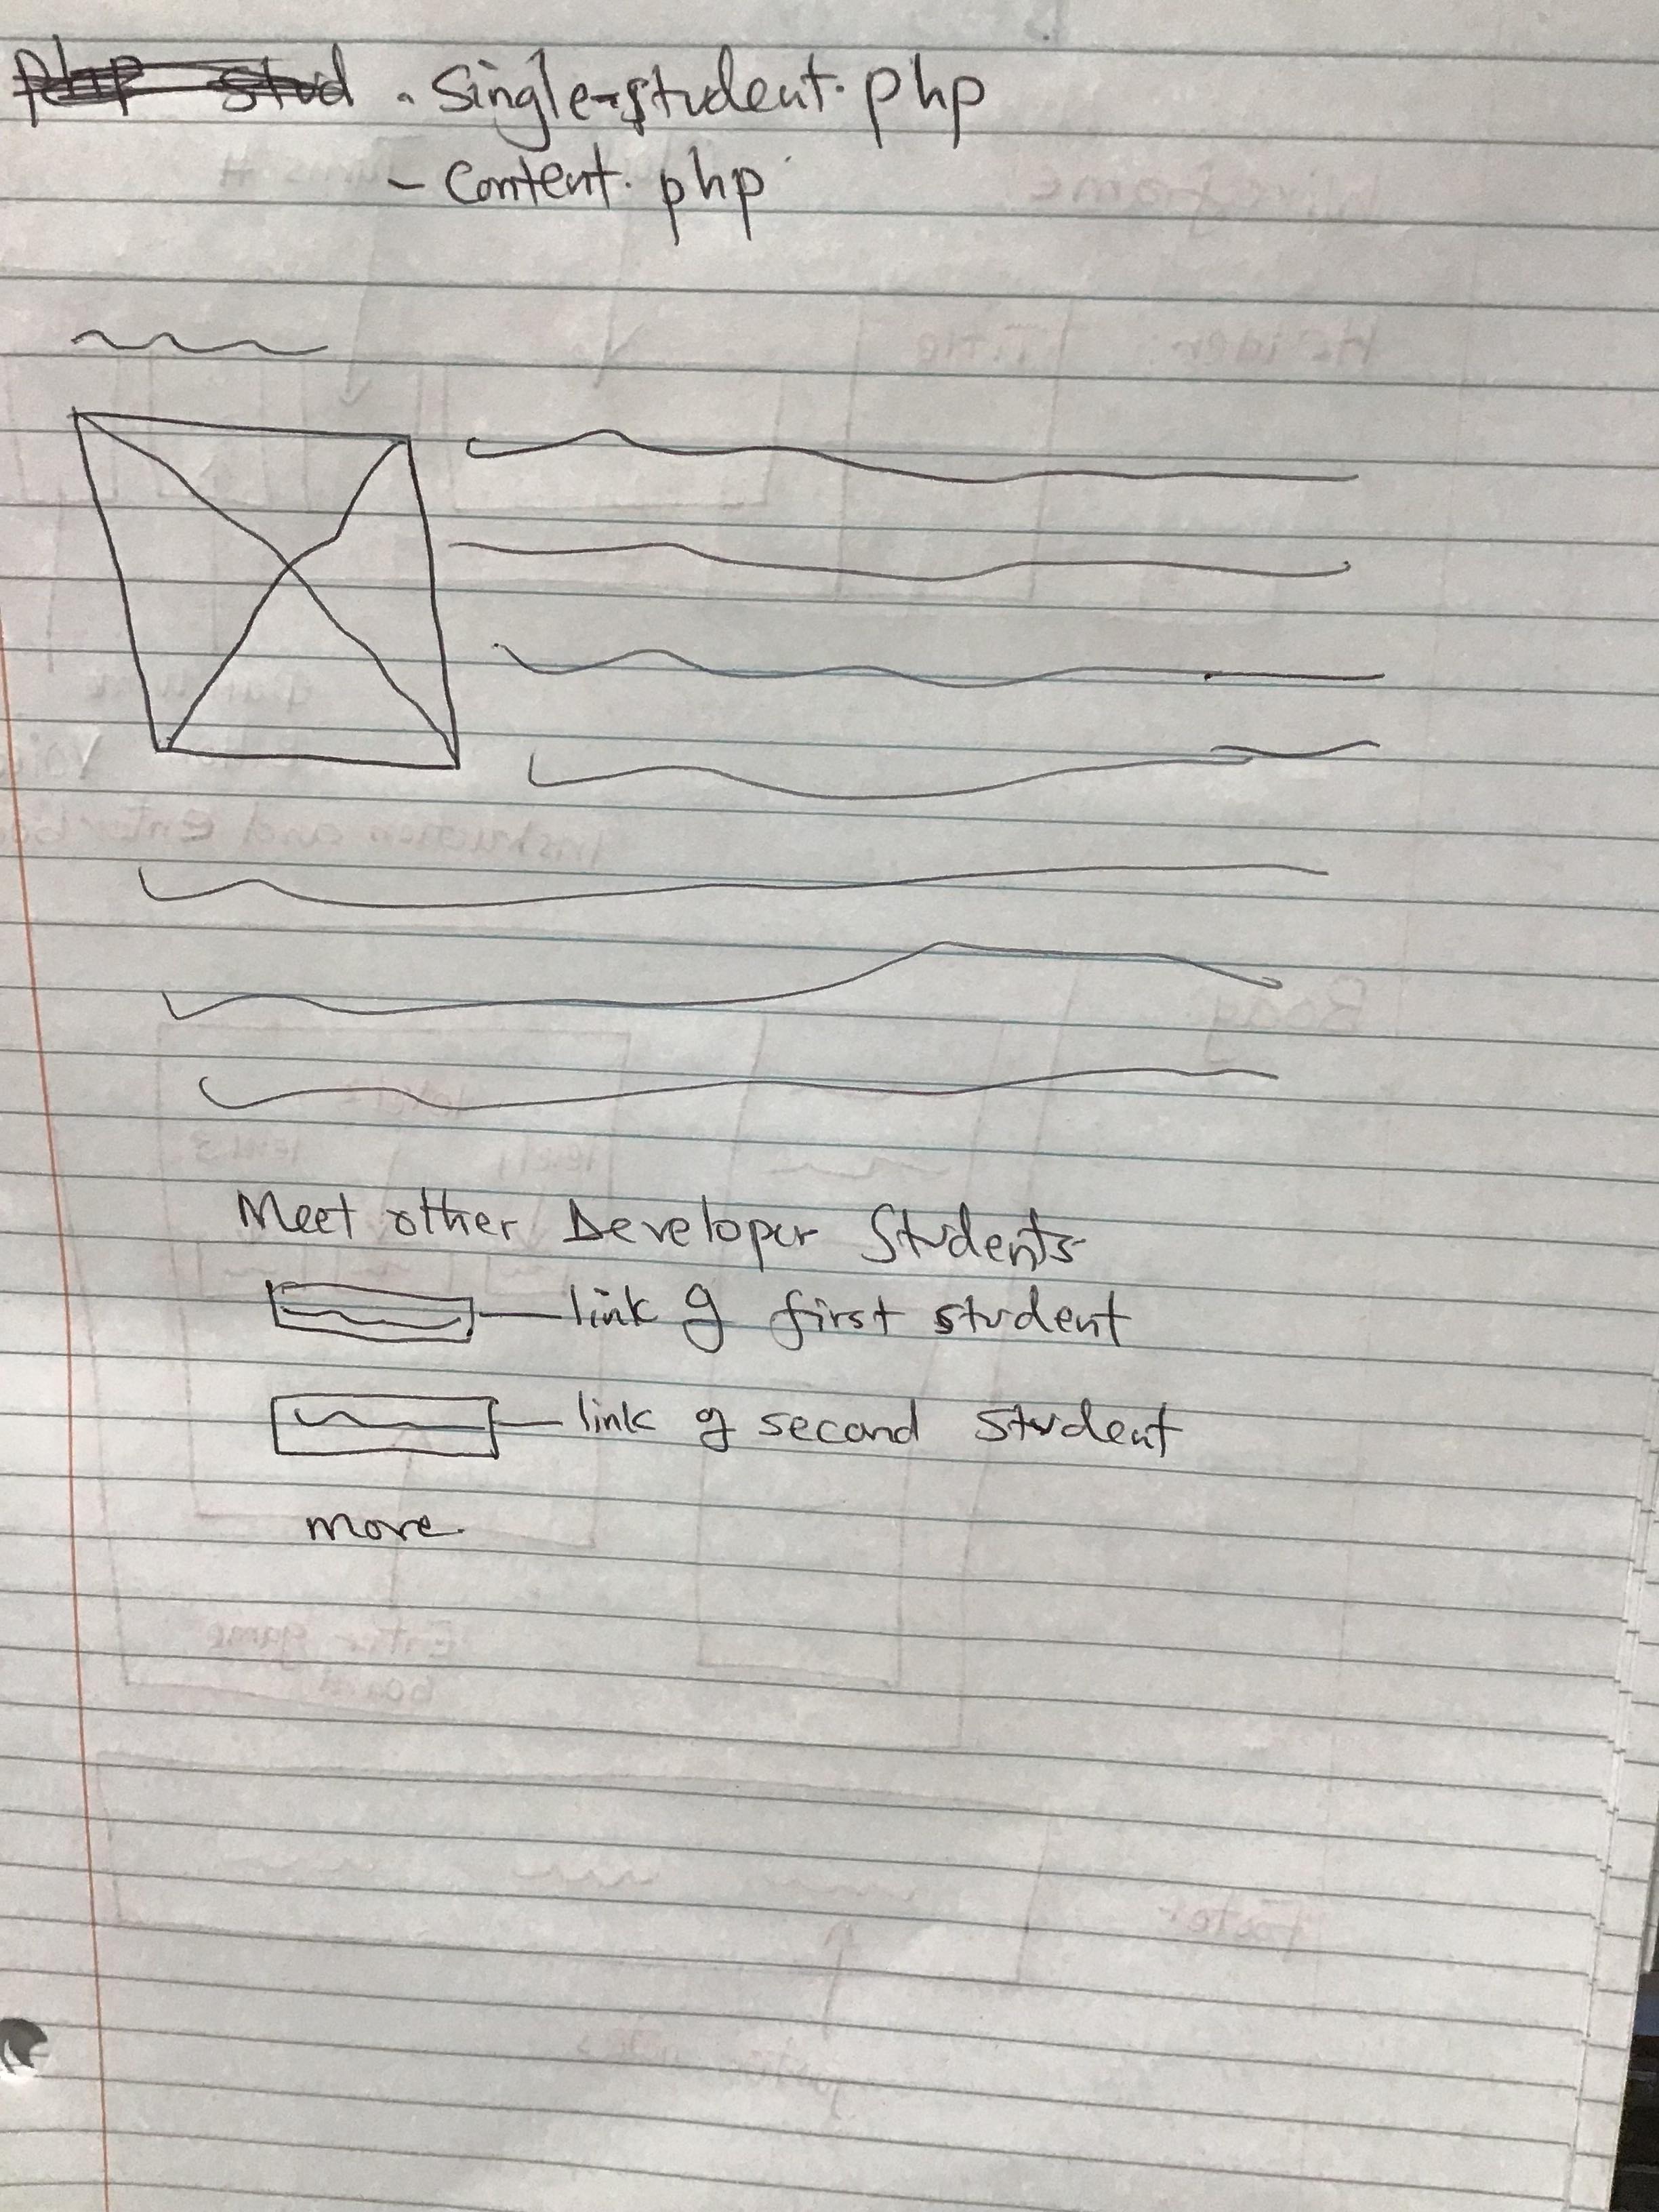 php stud . Single-student.php
- Content.php
Meet other Developer Students
link of first student
link of second student
more